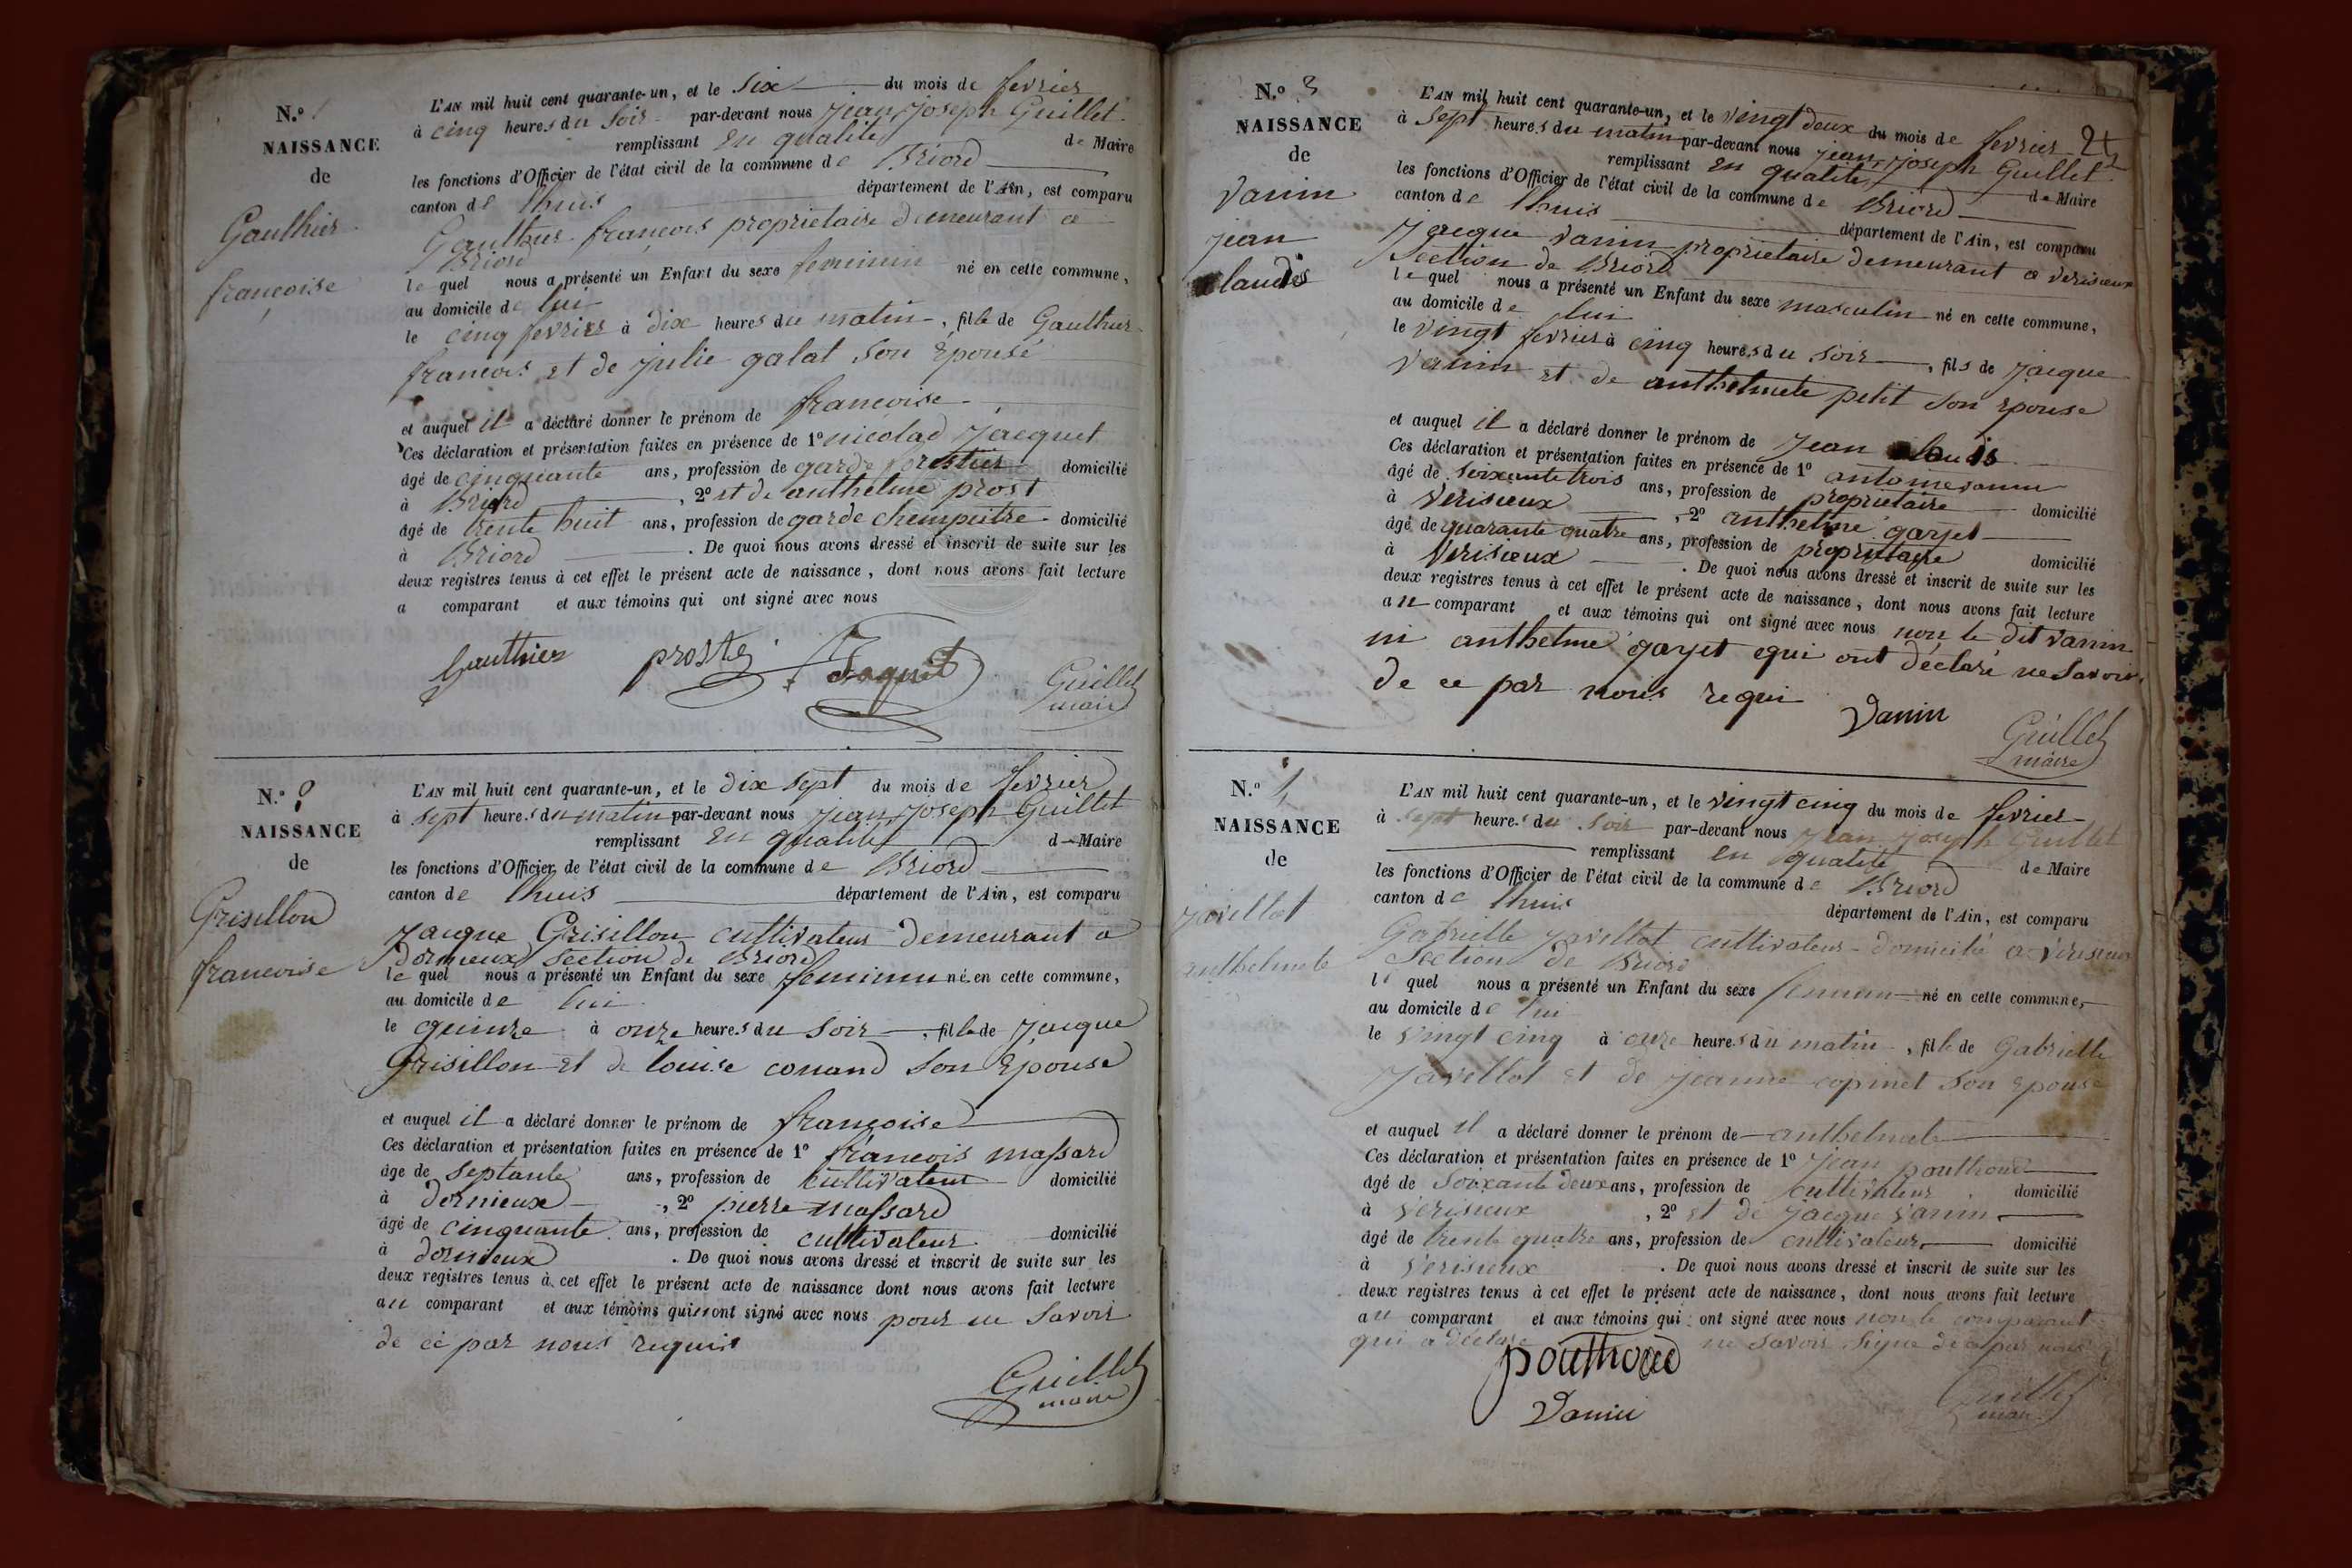 N.º 1
NAISSANCE
de
Gaulthier
françoise
L'AN mil huit cent quarante-un, et le six du mois de fevrier
à cinq heures du soir par-devant nous jean joseph Guillet
remplissant en qualité de Maire
les fonctions d'Officier de l'état civil de la commune de Briord
canton de lhuis département de l'Ain, est comparu
Gaulthier françois proprietaire demeurant a
Briord
le quel nous a présenté un Enfant du sexe feminin né en cette commune,
au domicile de lui
le cinq fevrier à dix heures du matin, fille de Gaulthier
francois et de julie galat son épouse
et auquel il a déclaré donner le prénom de francoise
Ces déclaration et présentation faites en présence de 1º nicolad jacquet
âgé de cinquante ans, profession de garde forestier domicilié
à Briord, 2º et de anthelme prost
âgé de trente huit ans, profession de garde champeitre domicilié
à Briord. De quoi nous avons dressé et inscrit de suite sur les
deux registres tenus à cet effet le présent acte de naissance, dont nous avons fait lecture
a comparant et aux témoins qui ont signé avec nous
Gauthier proste Jaquet Guillet
maire
N.º 2
NAISSANCE
de
Grisillon
francoise
L'AN mil huit cent quarante-un, et le dix sept du mois de fevrier
à sept heures du matin par-devant nous jean joseph Guillet
remplissant en qualité de Maire
les fonctions d'Officier de l'état civil de la commune de Briord
canton de lhuis département de l'Ain, est comparu
jacque Grisillon cultivateur demeurant a
Dornieux section de Briord
le quel nous a présenté un Enfant du sexe feminin né en cette commune,
au domicile de lui
le quinze à onze heures du soir, fille de jacque
Grisillon et de louise conand son épouse
et auquel il a déclaré donner le prénom de françoise
Ces déclaration et présentation faites en présence de 1º francois massard
âge de septante ans, profession de cultivateur domicilié
à dornieux, 2º pierre massard
âgé de cinquante ans, profession de cultivateur domicilié
à dornieux. De quoi nous avons dressé et inscrit de suite sur les
deux registres tenus à cet effet le présent acte de naissance dont nous avons fait lecture
au comparant et aux témoins qui ont signé avec nous pour ne savoir
de ce par nous requis
Guillet
maire
N.º 3
NAISSANCE
de
Vanin
jean
claude
L'AN mil huit cent quarante-un, et le vingt deux du mois de fevrier
à sept heures du matin par-devant nous jean joseph Guillet
remplissant en qualité de Maire
les fonctions d'Officier de l'état civil de la commune de Briord
canton de lhuis département de l'Ain, est comparu
jacque vanin proprietaire demeurant a verisieux
section de Briord
le quel nous a présenté un Enfant du sexe masculin né en cette commune,
au domicile de lui
le vingt fevrier à cinq heures du soir, fils de jacque
vanin et de anthelmete petit son épouse
et auquel il a déclaré donner le prénom de jean claude
Ces déclaration et présentation faites en présence de 1º antoine vanin
âgé de soixante trois ans, profession de proprietaire domicilié
à verisieux, 2º anthelme gayet
âgé de quarante quatre ans, profession de proprietaire domicilié
à verisieux. De quoi nous avons dressé et inscrit de suite sur les
deux registres tenus à cet effet le présent acte de naissance, dont nous avons fait lecture
au comparant et aux témoins qui ont signé avec nous non le dit vanin
ni anthelme gayet qui ont déclaré ne savoir
de ce par nous requi
Vanin Guillet
maire
N.º 4
NAISSANCE
de
javillot
anthelmete
L'AN mil huit cent quarante-un, et le vingt cinq du mois de fevrier
à sept heures du soir par-devant nous jean joseph Guillet
remplissant en qualité de Maire
les fonctions d'Officier de l'état civil de la commune de Briord
canton de lhuis département de l'Ain, est comparu
Gabrielle javillot cultivateur domicilié a verisieux
section de Briord
le quel nous a présenté un Enfant du sexe feminin né en cette commune,
au domicile de lui
le vingt cinq à onze heures du matin, fille de Gabrielle
javillot et de jeanne copinet son epouse
et auquel il a déclaré donner le prénom de anthelmete
Ces déclaration et présentation faites en présence de 1º jean pouthoud
âgé de soixante deux ans, profession de cultivateur domicilié
à verisieux, 2º et de jacque vanin
âgé de trente quatre ans, profession de cultivateur domicilié
à verisieux. De quoi nous avons dressé et inscrit de suite sur les
deux registres tenus à cet effet le présent acte de naissance, dont nous avons fait lecture
au comparant et aux témoins qui ont signé avec nous non le comparant
qui a déclaré ne savoir signe de ce par nous
pouthoud
Vanin
Guillet
maire